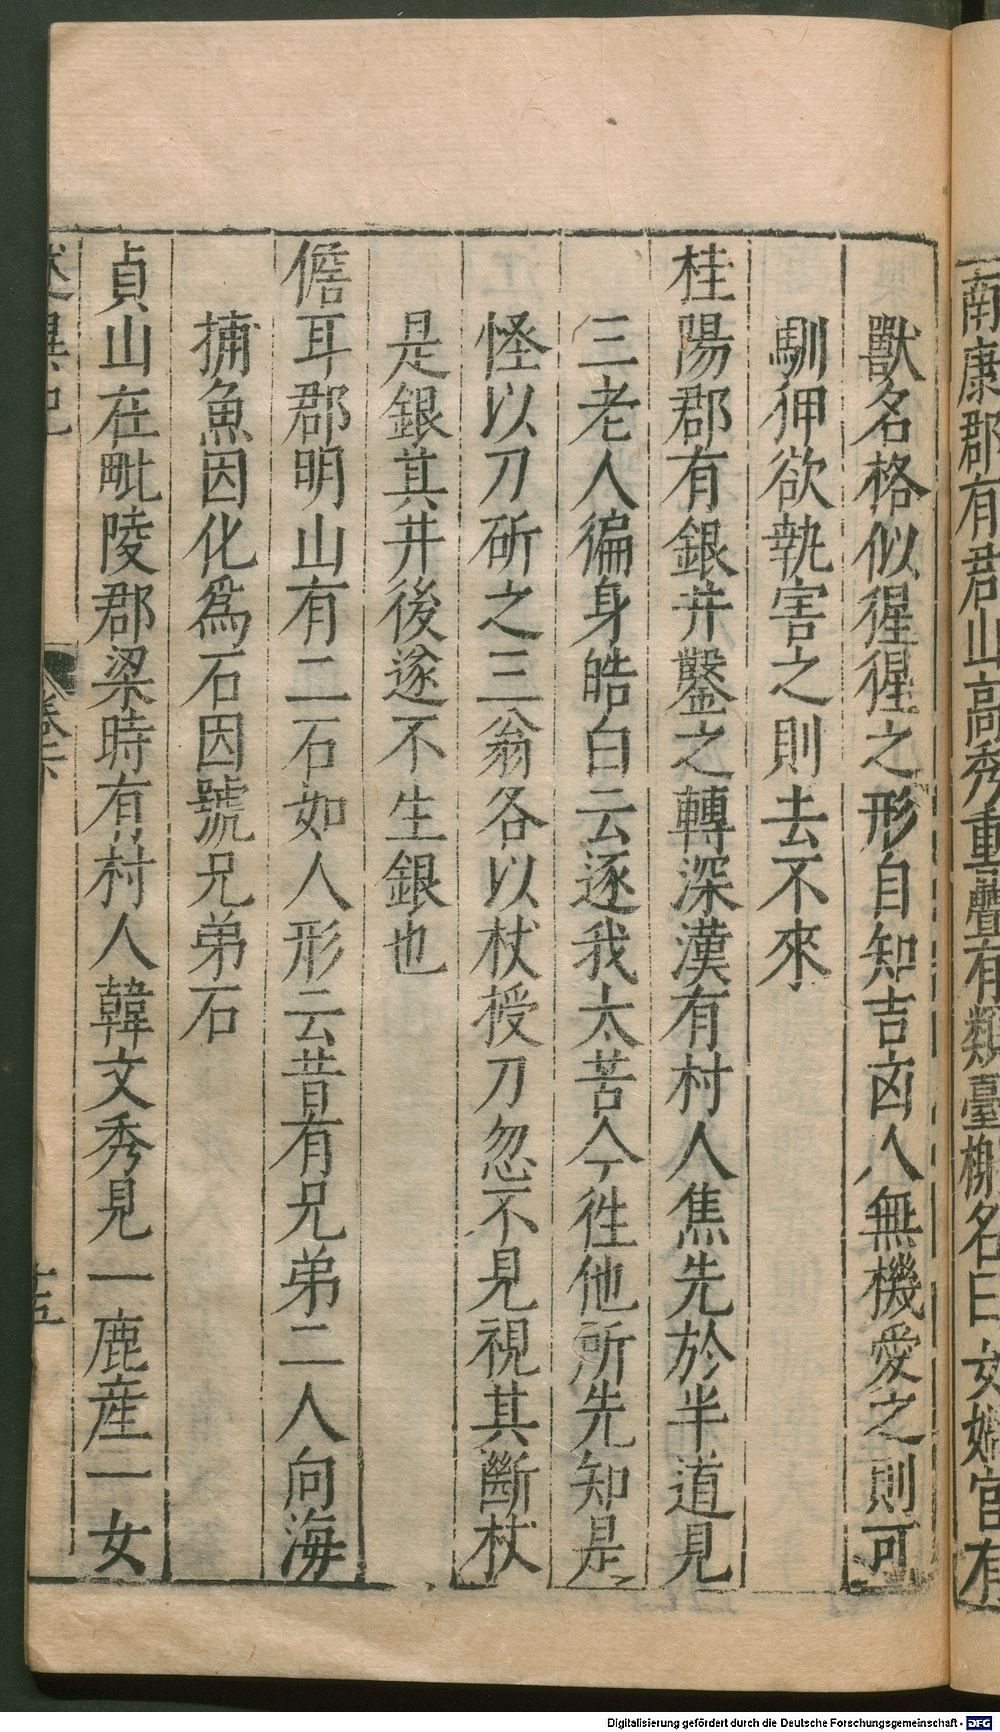 南康郡有君山高秀重疊有類臺榭名曰女媧宮有
獸名格似猩猩之形自知吉凶人無機愛之則可
馴狎欲執害之則去不來
桂陽郡有銀井鑿之轉深漢有村人焦先於半道見
三老人徧身皓白云逐我太苦今徃他所先知是
怪以刀斫之三翁各以杖授刀忽不見視其斷杖
是銀其井後遂不生銀也
儋耳郡明山有二石如人形云昔有兄弟二人向海
捕魚因化爲石因號兄弟石
貞山在毗陵郡梁時有村人韓文秀見一鹿産一女
述異記 卷下 十五
Digitalisierung gefördert durch die Deutsche Forschungsgemeinschaft - DFG